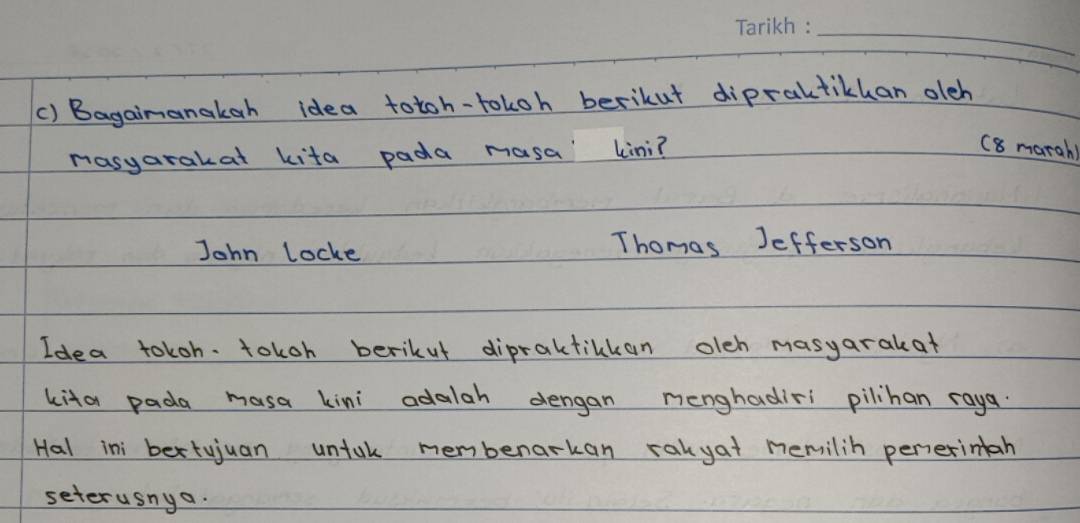 Tarikh :
c) Bagaimanakah idea tokoh-tokoh berikut dipraktikkan oleh
masyarakat kita pada masa kini? (8 marah)
John Locke Thomas Jefferson
Idea tokoh-tokoh berikut dipraktikkan oleh masyarakat
kita pada masa kini adalah dengan menghadiri pilihan raya.
Hal ini bertujuan untuk membenarkan rakyat memilih pemerintah
seterusnya.